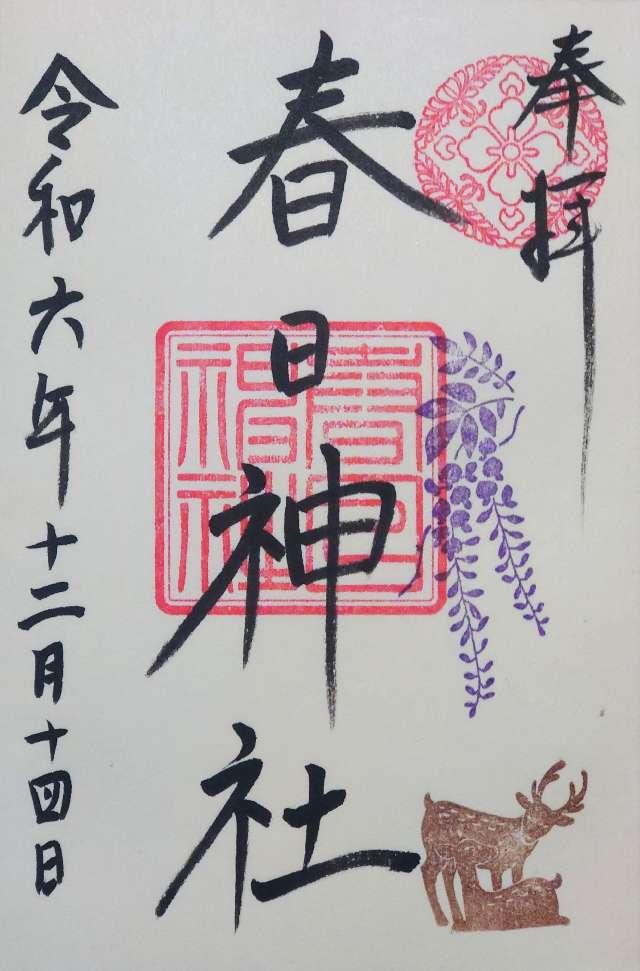 奉拝
春日神社
春日神社
令和六年十二月十四日